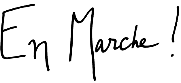 En Marche !